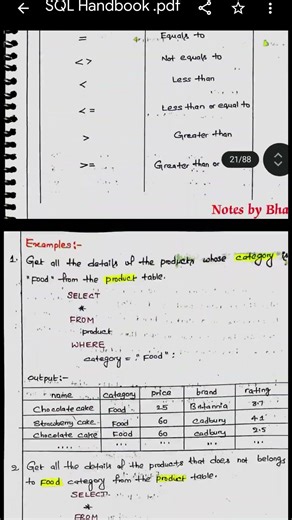 SQL Handbook .pdf
= Equals to
<> Not equals to
< Less than
<= Less than or equal to
> Greater than
>= Greater than or
21/88
Notes by Bha
Examples:-
1. Get all the details of the products whose category is
"Food" from the product table.
SELECT
*
FROM
product
WHERE
category = "Food";
Output:-
name category price brand rating
Chocolate cake Food 25 Britannia 3.7
Strawberry cake Food 60 Cadbury 4.1
Chocolate cake Food 60 cadbury 2.5
... ... ... ... ...
2. Get all the details of the products that does not belongs
to Food category from the product table.
SELECT
*
FROM